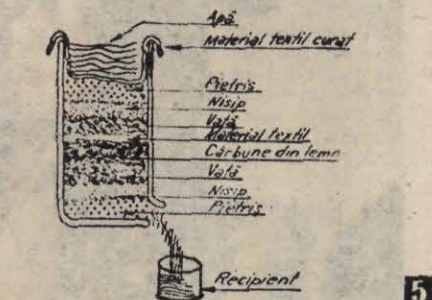 Apă
Material textil curat
Pietriș
Nisip
Vată
Material textil
Cărbune din lemn
Vată
Nisip
Pietriș
Recipient
5